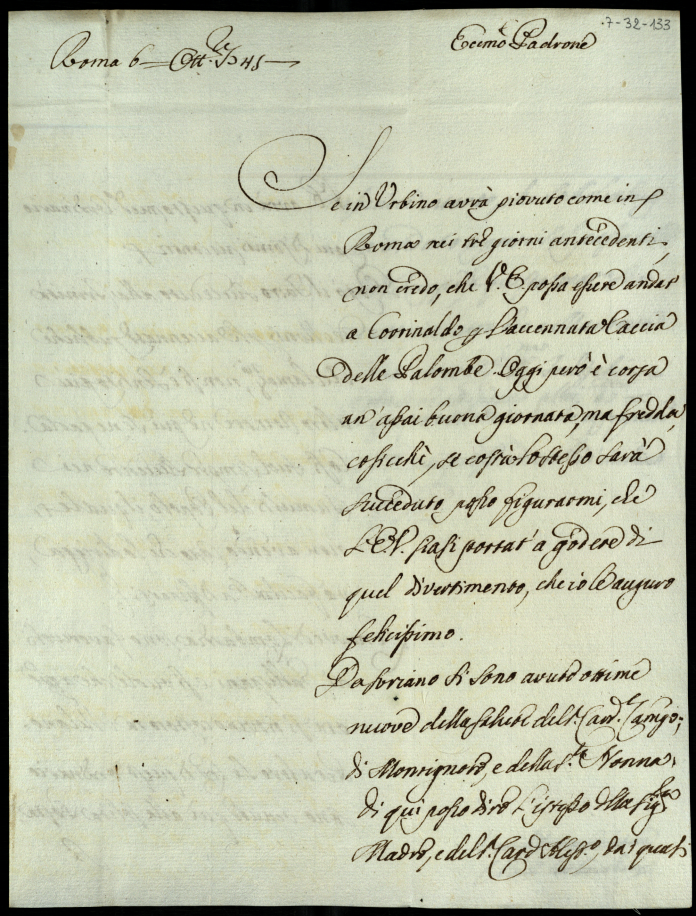 7-32-133
Eccmo Padrone
Roma 6 Ottre 1745
Se in Urbino avrà piovuto come in
Roma nei trè giorni antecedenti,
non credo, che V. E. possa essere andat'
a Corinaldo p l'accennata Caccia
delle Palombe. Oggi però è corsa
un' assai buona giornata, ma fredda,
cosicchè, se costà lo stesso sarà
succeduto posso figurarmi, che
L'E.V. siasi portat' a godere di
quel divertimento, che io le auguro
felicissimo.
Da Soriano si sono avute ottime
nuove della salute del Sr. Carde
di Monsignore, e della Sra Nonna,
di qui posso dire l'istesso della Sigra
Madre, e del Sr. Card Aless.o, dai quali